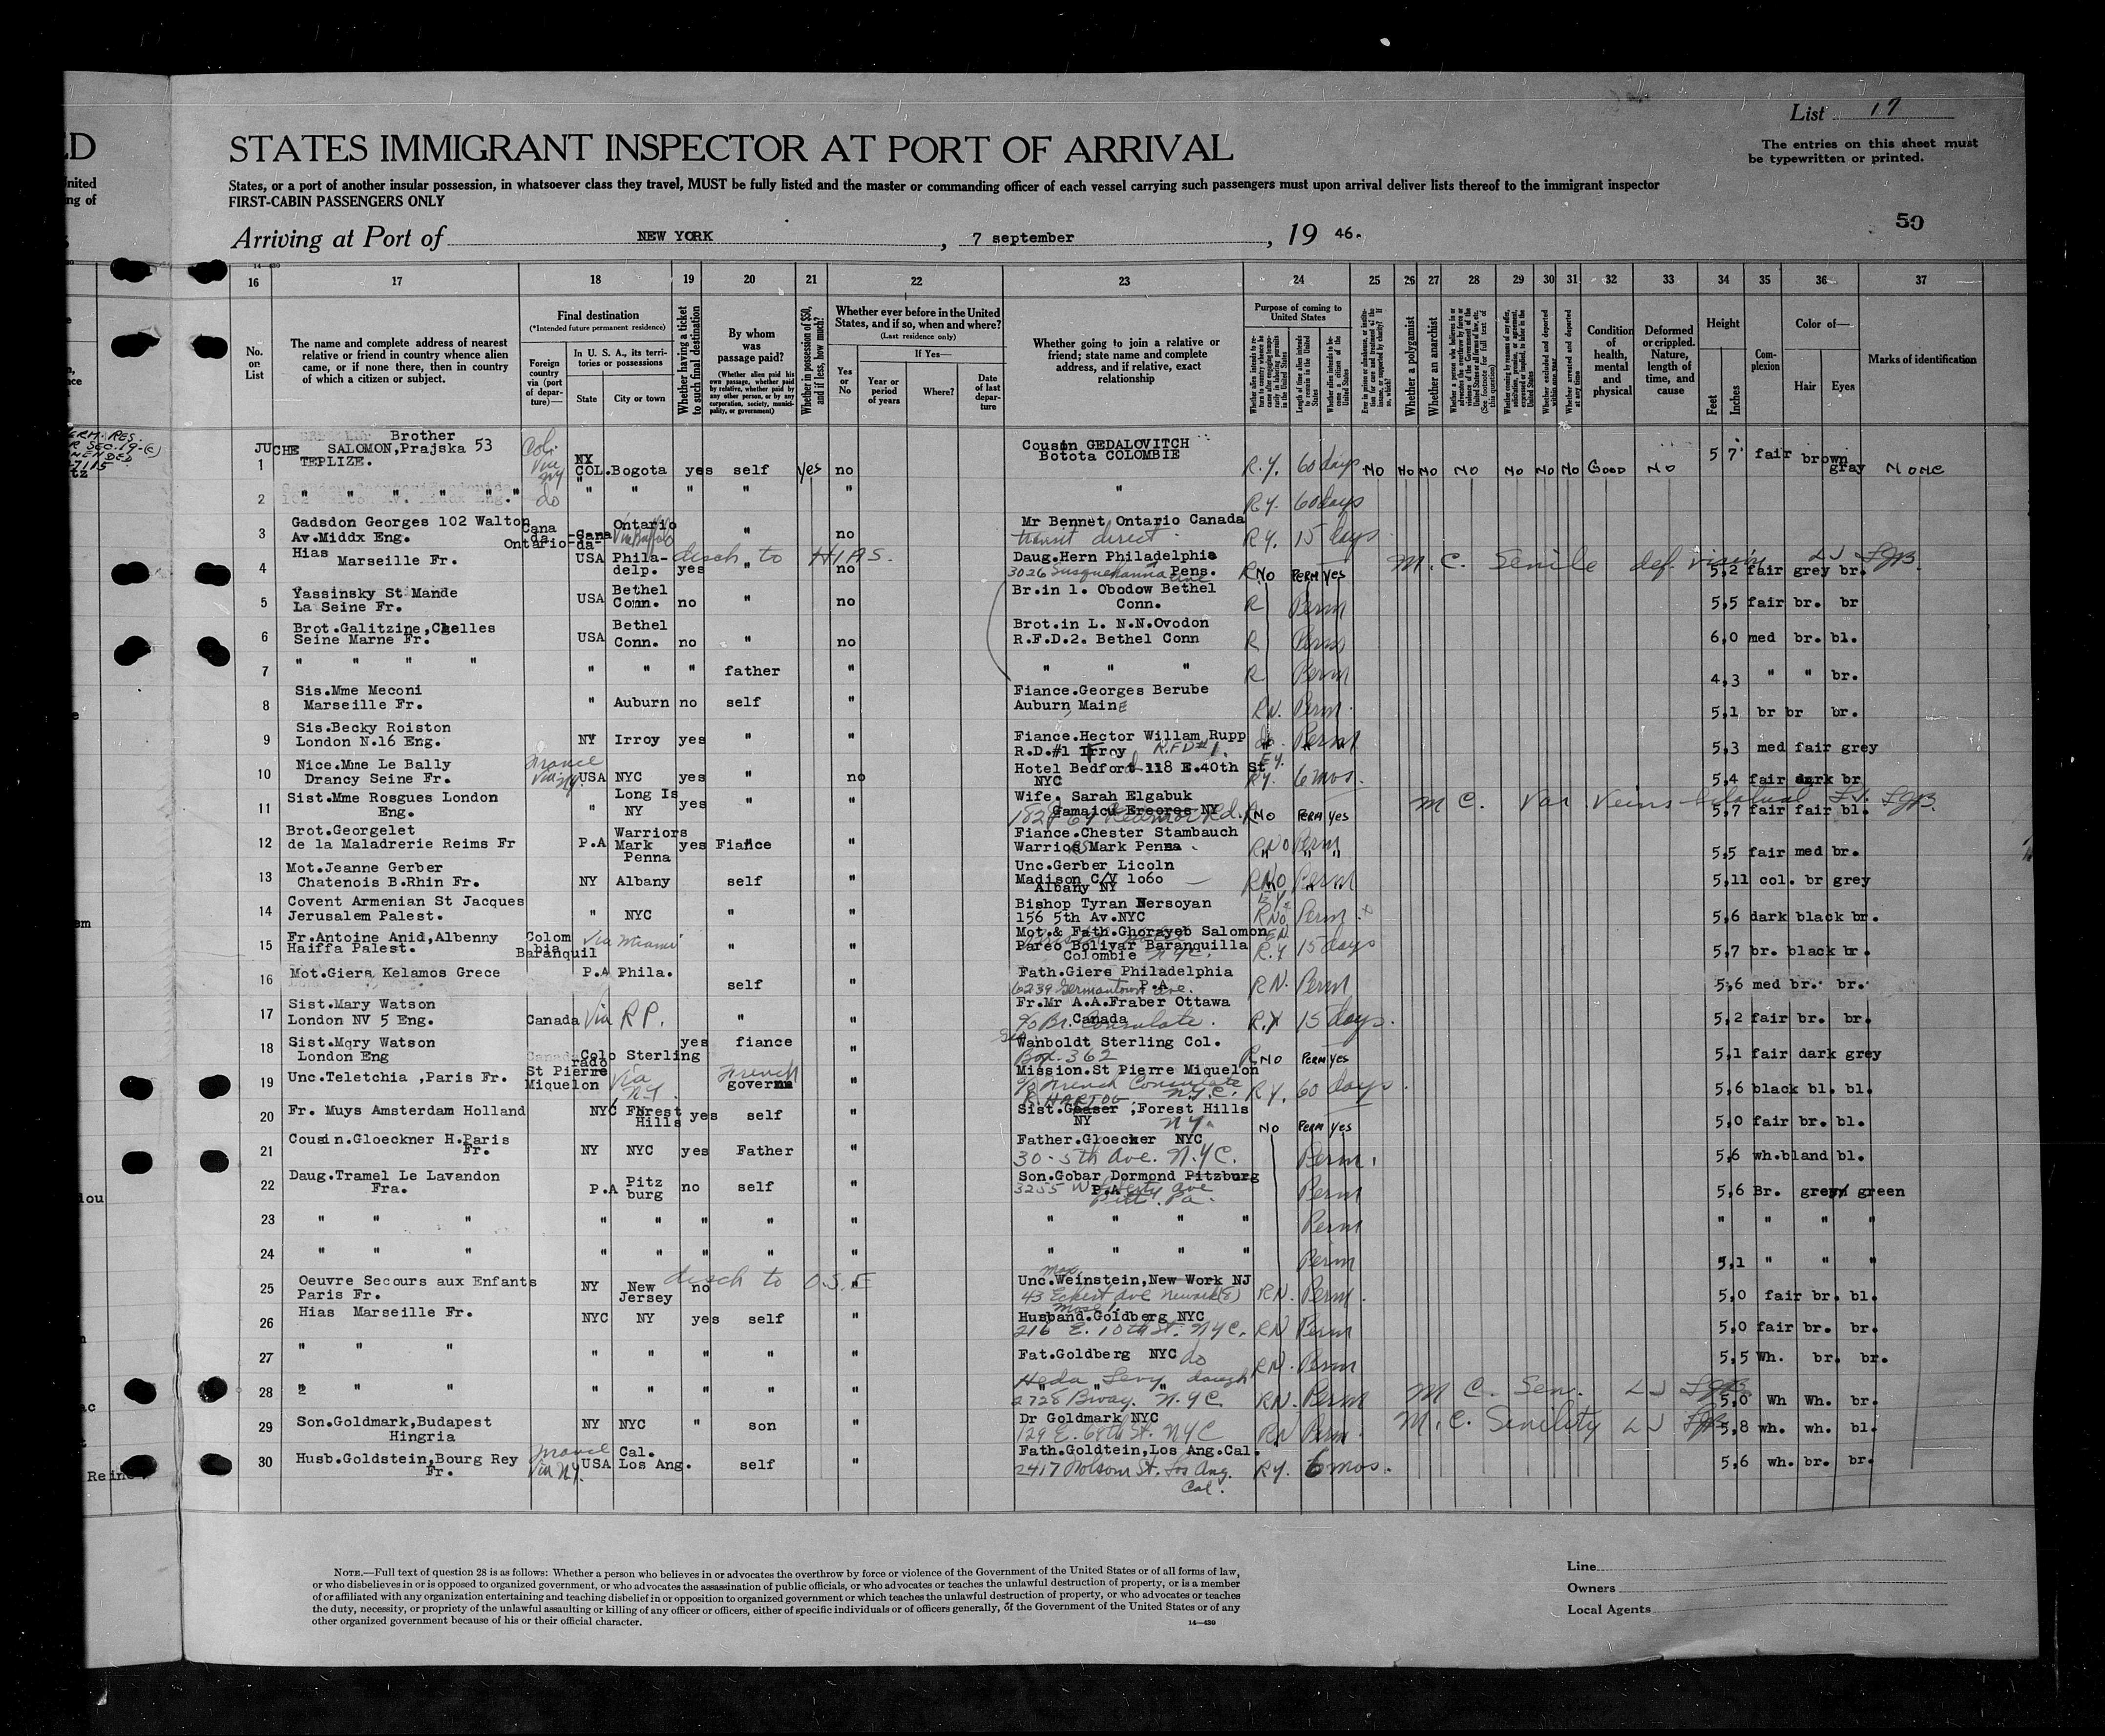 List 17
The entries on this sheet must
be typewritten or printed.
STATES IMMIGRANT INSPECTOR AT PORT OF ARRIVAL
States, or a port of another insular possession, in whatsoever class they travel, MUST be fully listed and the master or commanding officer of each vessel carrying such passengers must upon arrival deliver lists thereof to the immigrant inspector
FIRST-CABIN PASSENGERS ONLY
50
Arriving at Port of NEW YORK, 7 september, 19 46.
16 17 18 19 20 21 22 23 24 25 26 27 28 29 30 31 32 33 34 35 36 37
No. on List
The name and complete address of nearest relative or friend in country whence alien came, or if none there, then in country of which a citizen or subject.
Final destination
(*Intended future permanent residence)
Foreign country via (port of departure)—
In U. S. A., its territories or possessions
State
City or town
Whether having a ticket to such final destination
By whom was passage paid?
(Whether alien paid his own passage, whether paid by relative, whether paid by any other person, or by any corporation, society, municipality, or government)
Whether in possession of $50, and if less, how much?
Whether ever before in the United States, and if so, when and where?
(Last residence only)
Yes or No
If Yes—
Year or period of years
Where?
Date of last departure
Whether going to join a relative or friend; state name and complete address, and if relative, exact relationship
Purpose of coming to United States
Length of time alien intends to remain in the United States
Whether alien intends to become a citizen of the United States
Whether a polygamist
Whether an anarchist
Whether excluded and deported within one year
Whether arrested and deported at any time
Condition of health, mental and physical
Deformed or crippled. Nature, length of time, and cause
Height
Feet
Inches
Complexion
Color of—
Hair
Eyes
Marks of identification
1 JUCHE Brother SALOMON,Prajska 53 TEPLIZE. Col. via NY NY COL. Bogota yes self yes no Cousin GEDALOVITCH Botota COLOMBIE R.Y. 60 days No No No No No No No Good No 5 7 fair brown gray None
2 " " " " " do " " " " " " R.Y. 60 days
3 Gadsdon Georges 102 Walton Av.Middx Eng. Canada Ontario Cana da Ontario via Buffalo " no Mr Bennet Ontario Canada transit direct R.Y. 15 days
4 Hias Marseille Fr. USA Phila-delp. yes " no disch to HIAS. Daug.Hern Philadelphia Pens. 3026 Susquehanna Ave R No Perm Yes M.C. Senile def. vision 5,2 fair grey br.
5 Yassinsky St Mande La Seine Fr. USA Bethel Conn. no " no Br.in l. Obodow Bethel Conn. R Perm 5,5 fair br. br
6 Brot.Galitzine,Chelles Seine Marne Fr. USA Bethel Conn. no " no Brot.in L. N.N.Ovodon R.F.D.2. Bethel Conn R Perm 6,0 med br. bl.
7 " " " " " " " father " " " " R Perm 4,3 " " br.
8 Sis.Mme Meconi Marseille Fr. " Auburn no self " Fiance.Georges Berube Auburn Maine RN. Perm. 5,1 br br br.
9 Sis.Becky Roiston London N.16 Eng. NY Irroy yes " " Fiance.Hector Willam Rupp R.D.#1 Troy R.F.D #1. do. Perm 5,3 med fair grey
10 Nice.Mme Le Bally Drancy Seine Fr. France via NY. USA NYC yes " no Hotel Bedford 118 E.40th St NYC R.Y. 6 mos. 5,4 fair dark br
11 Sist.Mme Rosgues London Eng. " Long Is NY yes " " Wife. Sarah Elgabuk R No Perm Yes M C. Var Veins 5,7 fair fair bl.
12 Brot.Georgelet de la Maladrerie Reims Fr P.A Warriors Mark Penna yes Fiance " Fiance.Chester Stambauch Warriors Mark Penna R No Perm 5,5 fair med br.
13 Mot.Jeanne Gerber Chatenois B.Rhin Fr. NY Albany self " Unc.Gerber Licoln Madison C/V 1060 Albany NY R No Perm 5,11 col. br grey
14 Covent Armenian St Jacques Jerusalem Palest. " NYC " " Bishop Tyran Nersoyan 156 5th Av.NYC R No Perm 5,6 dark black br.
15 Fr.Antoine Anid,Albenny Haiffa Palest. Colom bia Baranquil via Miami " " Mot.& Fath.Ghorayeb Salomon Pareo Bolivar Baranquilla Colombie R.Y 15 days 5,7 br. black br.
16 Mot.Giers Kelamos Grece P.A Phila. self " Fath.Giers Philadelphia P.A. 6239 Germantown Ave. RN. Perm 5,6 med br. br.
17 Sist.Mary Watson London NV 5 Eng. Canada via RP. " " Fr.Mr A.A.Fraber Ottawa Canada c/o Br. Consulate. R.Y 15 days. 5,2 fair br. br.
18 Sist.Mqry Watson London Eng Colo rado Sterling yes fiance " Wanboldt Sterling Col. Box 362 R No Perm Yes 5,1 fair dark grey
19 Unc.Teletchia ,Paris Fr. St Pierre Miquelon via NY. French governm " Mission.St Pierre Miquelon c/o French Consulate N.Y.C. R.Y. 60 days. 5,6 black bl. bl.
20 Fr. Muys Amsterdam Holland NYC Forest Hills yes self " R. HARTOG Sist. ,Forest Hills NY N.Y. No Perm Yes 5,0 fair br. bl.
21 Cousin.Gloeckner H.Paris Fr. NY NYC yes Father " Father.Gloecker NYC 30-5th Ave. N.Y.C. Perm. 5,6 wh.bland bl.
22 Daug.Tramel Le Lavandon Fra. P.A Pitz burg no self " Son.Gobar Dormond Pitzburg P.A Perm 5,6 Br. grey green
23 " " " " " " " " " " " " Perm " " " "
24 " " " " " " " " " " " " Perm 5,1 " " "
25 Oeuvre Secours aux Enfants Paris Fr. NY New Jersey no disch to O.S.E " Unc.Weinstein,New Work NJ 43 Eckert Ave Newark RN. Perm. 5,0 fair br. bl.
26 Hias Marseille Fr. NYC NY yes self " Husband.Goldberg NYC 216 E. 10th St. NYC. RN Perm 5,0 fair br. br.
27 " " " " " " " " Fat.Goldberg NYC do RN. Perm 5,5 Wh. br. br.
28 " " " " " " " " Heda Levy daugh 2728 Bway. N.Y C. RN. Perm M C. Sen. 5,0 Wh Wh. br.
29 Son.Goldmark,Budapest Hingria NY NYC " son " Dr Goldmark NYC 129 E. 69th St. NYC RN Perm. M.C. Senility 5,8 wh. wh. bl.
30 Husb.Goldstein,Bourg Rey Fr. France via NY. USA Cal. Los Ang. self " Fath.Goldtein,Los Ang.Cal. 2417 Folsom St. Los Ang. Cal. R.Y. 6 mos. 5,6 wh. br. br.
NOTE.—Full text of question 28 is as follows: Whether a person who believes in or advocates the overthrow by force or violence of the Government of the United States or of all forms of law,
or who disbelieves in or is opposed to organized government, or who advocates the assassination of public officials, or who advocates or teaches the unlawful destruction of property, or is a member
of or affiliated with any organization entertaining and teaching disbelief in or opposition to organized government or which teaches the unlawful destruction of property, or who advocates or teaches
the duty, necessity, or propriety of the unlawful assaulting or killing of any officer or officers, either of specific individuals or of officers generally, of the Government of the United States or of any
other organized government because of his or their official character.
14—430
Line
Owners
Local Agents